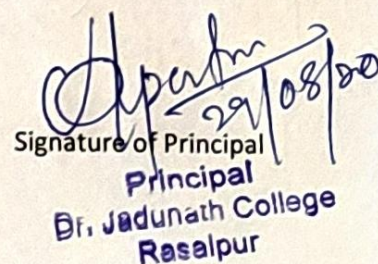 29/08/20
Signature of Principal
Principal
Dr. Jadunath College
Rasalpur